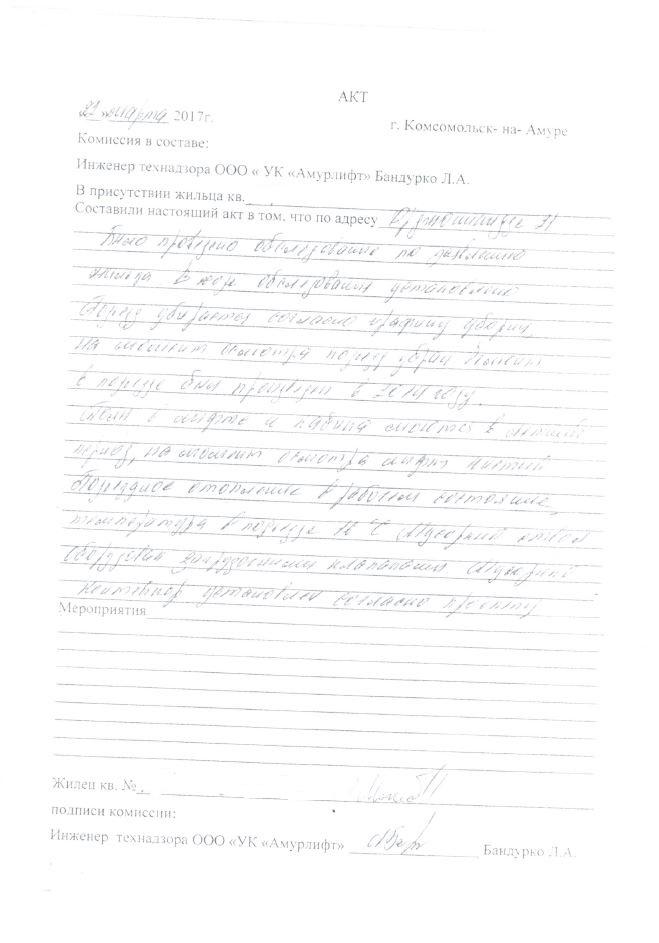 АКТ
21 марта 2017г.
г. Комсомольск- на- Амуре
Комиссия в составе:
Инженер технадзора ООО « УК «Амурлифт» Бандурко Л.А.
В присутствии жильца кв.
Составили настоящий акт в том, что по адресу
Было проведено обследование по заявлению
жильца В ходе обследования установлено
Подъезд убирается согласно графику уборки,
на момент осмотра подъезд убран Ремонт
в подъезде был произведен в 2014 году.
в лифте и кабина моется в
период, на момент осмотра лифт чистый
Подъездное отопление в рабочем состоянии,
температура в подъезде 16°С Мусорный ствол
оборудован загрузочными клапанами Мусорный
контейнер установлен согласно проекту
Мероприятия
Жилец кв. №
подписи комиссии:
Инженер технадзора ООО «УК «Амурлифт» Бандурко Л.А.